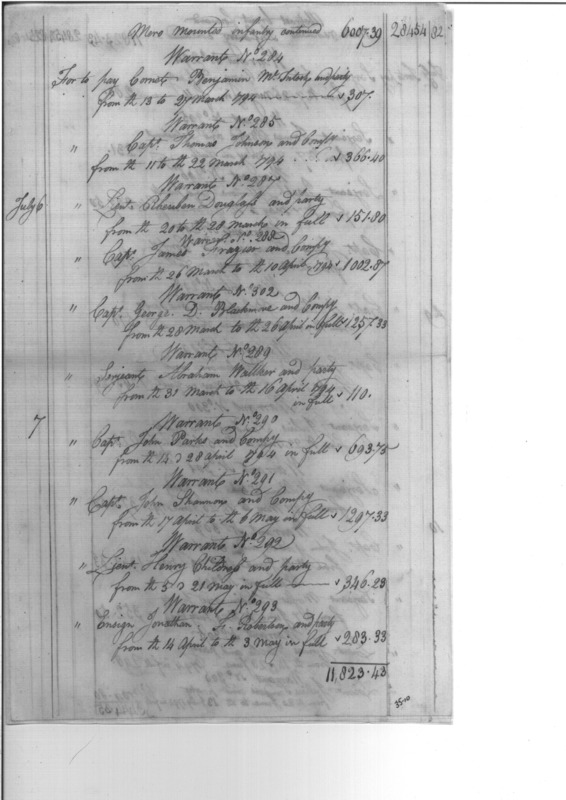 More mounted infantry continued 6007.39 28454 82
Warrant No. 284
For to pay Cornet Benjamin McIntosh and party
from the 13 to 27 March 1794 $307.
Warrant No. 285
" Capt. Thomas Johnson and Compy
from the 11 to the 22 March 1794 $366.40
Warrant No. 287
July 6 " Lieut. Douglass and party
from the 20 to the 28 March in full $151.80
Warrt. No. 288
" Capt. James Frazier and Compy
from the 26 March to the 10 April 1794 $1002.87
Warrant No. 302
" Capt. George D. Blackmore and Compy
from the 28 March to the 26 April in full $1257.33
Warrant No. 289
" Serjeant Abraham Walker and party
from the 31 March to the 16 April 1794
in full $110.
7 Warrant No. 290
" Capt. John Parks and Compy
from the 14 28 April 1794 in full $693.75
Warrant No. 291
" Capt. John Shannon and Compy
from the 17 April to the 6 May in full $1297.33
Warrant No. 292
" Lieut. Henry Childress and party
from the 5 21 May in full $346.23
Warrant No. 293
" Ensign Jonathan F. Robertson and party
from the 14 April to the 3 May in full $283.33
11,823.43